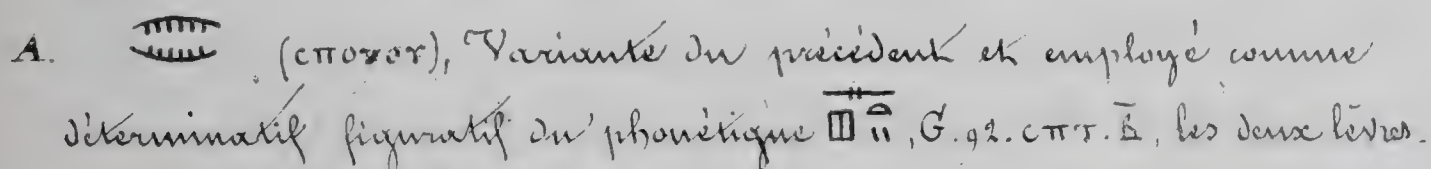 A. (ⲥⲡⲟⲧⲟⲩ), Variante du précédent et employé comme
déterminatif figuratif du phonétique 𓊃𓊪𓏏𓏭, G. 92. ⲥⲡⲧ. ⲃ̄, les deux lèvres.